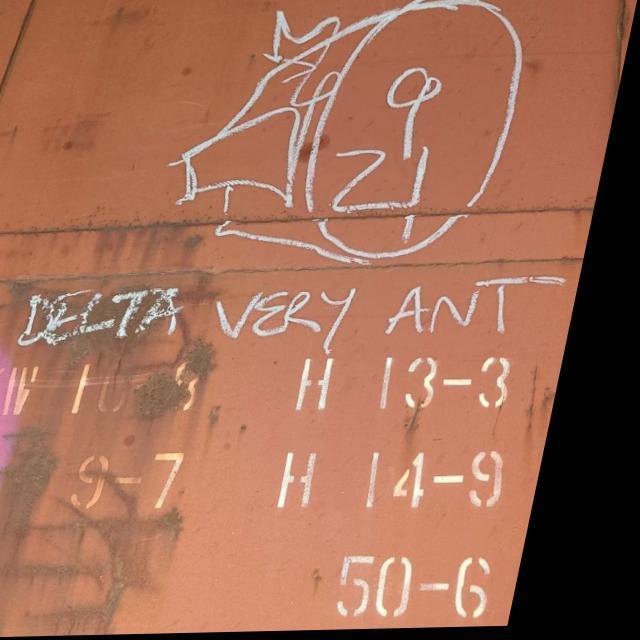 DELTA VERY ANT
H 13-3
9-7 H 14-9
50-6